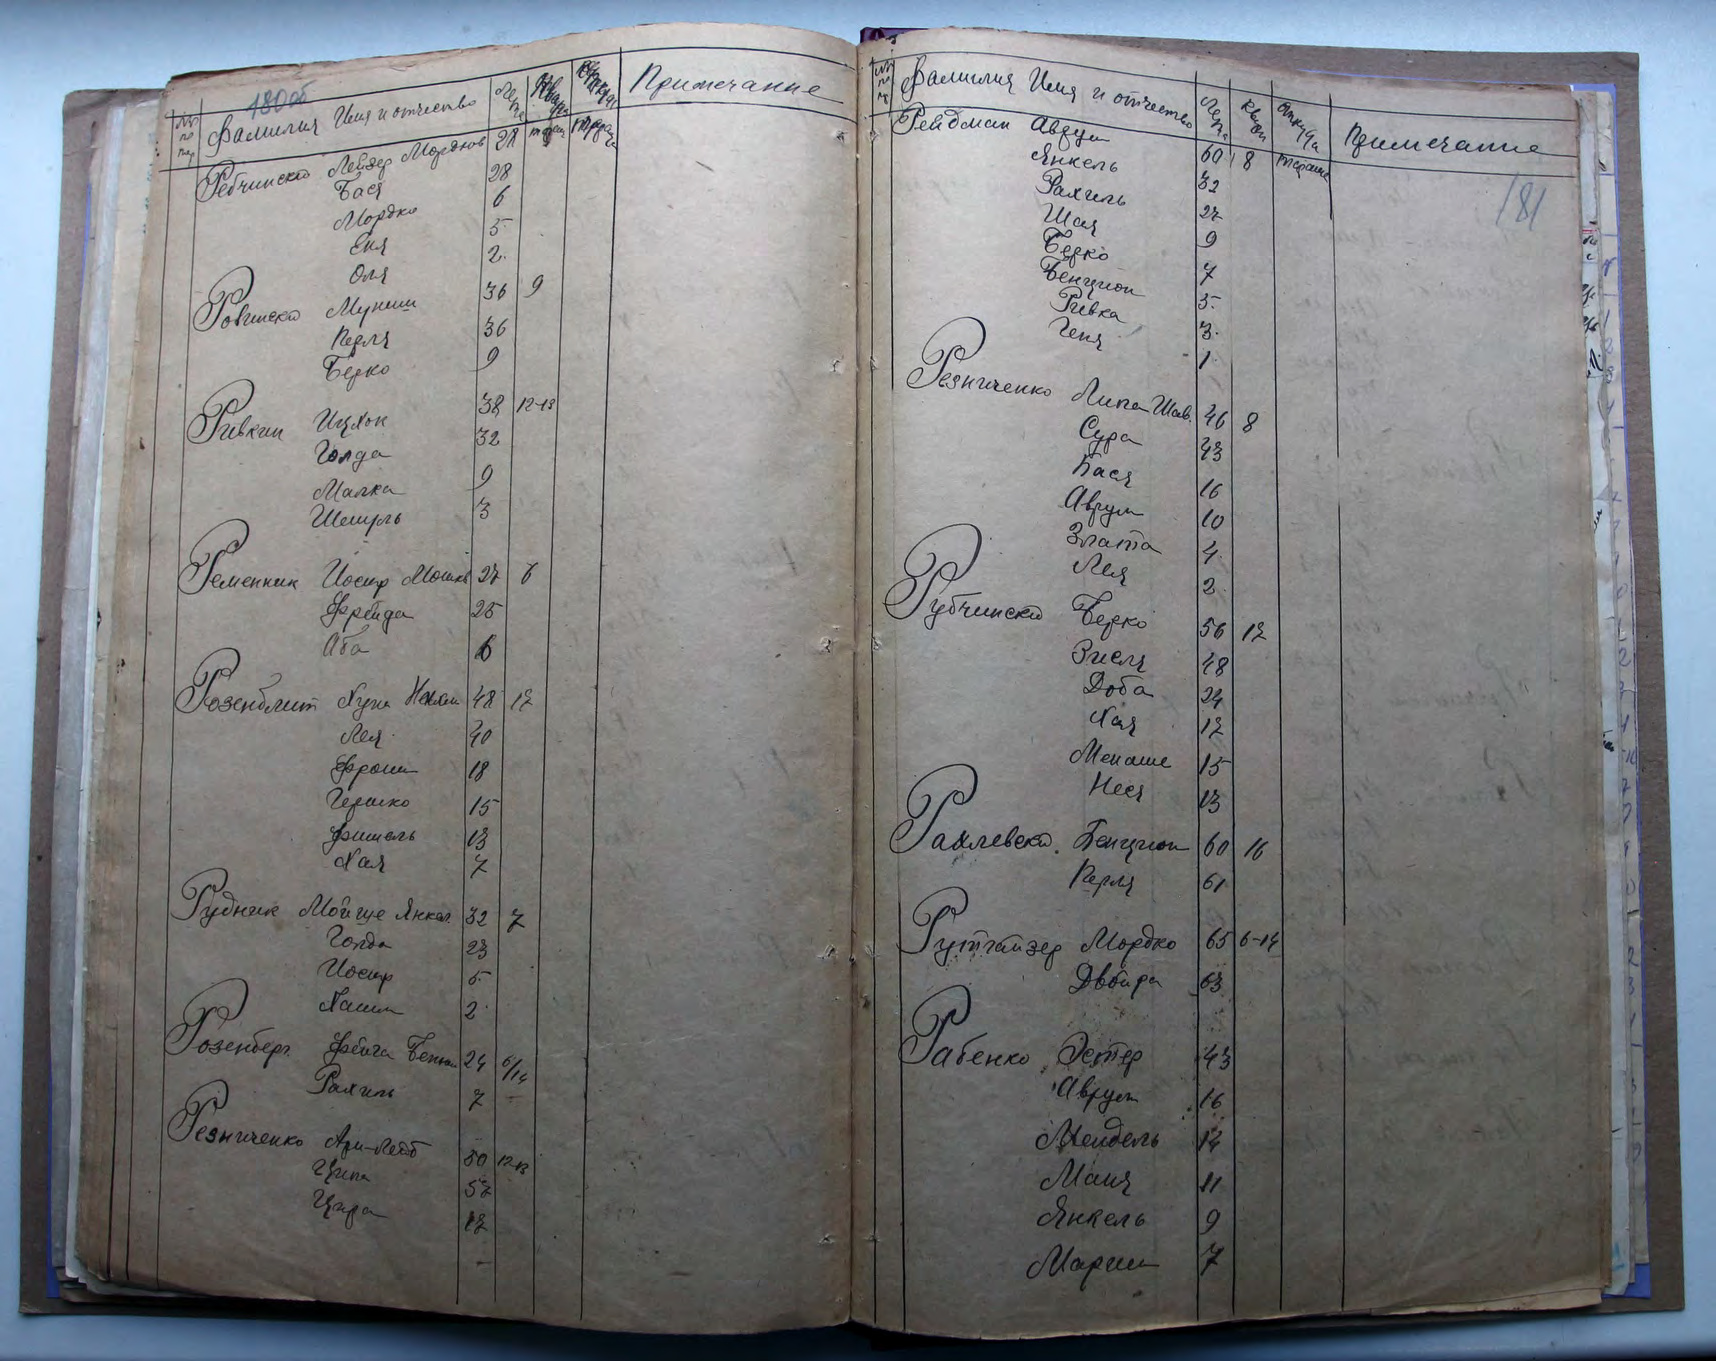 180об
№№ по пор. Фамилия Имя и отчество Лета Кварт Откуда Примечание
Ребчинский Лейзер Мордков 28
Бася 28
Мордко 6
Еня 5
Оля 2
Ровинский Муниш 36 9
Перля 36
Берко 9
Ривкин Ицхок 38 12-13
Голда 32
Малка 9
Шемуль 3
Ременник Иосиф Мошков 27 6
Фрейда 25
Аба 6
Розенблит Хуна 48 17
Лея 40
Фроим 18
Гершко 15
Фишель 13
Хая 7
Рудник Мойше Янкел. 32 7
Голда 23
Иосиф 5
Хаим 2
Розенберг Фейга 24 6/14
Рахиль 7
Резниченко Ари-Лейб 50 12-13
Ципа 57
Цира 17
181
№№ по пор. Фамилия Имя и отчество Лета Кварт Откуда Примечание
Рейдман Аврум 60 8
Янкель 32
Рахиль 27
Шая 9
Берко 7
Бенцион 5
Ривка 3
Геня 1
Резниченко Липа Шав. 46 8
Сура 43
Бася 16
Аврум 10
Злата 4
Лея 2
Рубчинский Берко 56 17
Зисля 48
Доба 24
Хая 17
Менаше 15
Неся 13
Рахлевский Бенцион 60 16
Перля 61
Рутгайзер Мордко 65 6-14
Двойра 63
Рабенко Эстер 43
Аврум 16
Мендель 14
Маня 11
Янкель 9
Марим 7